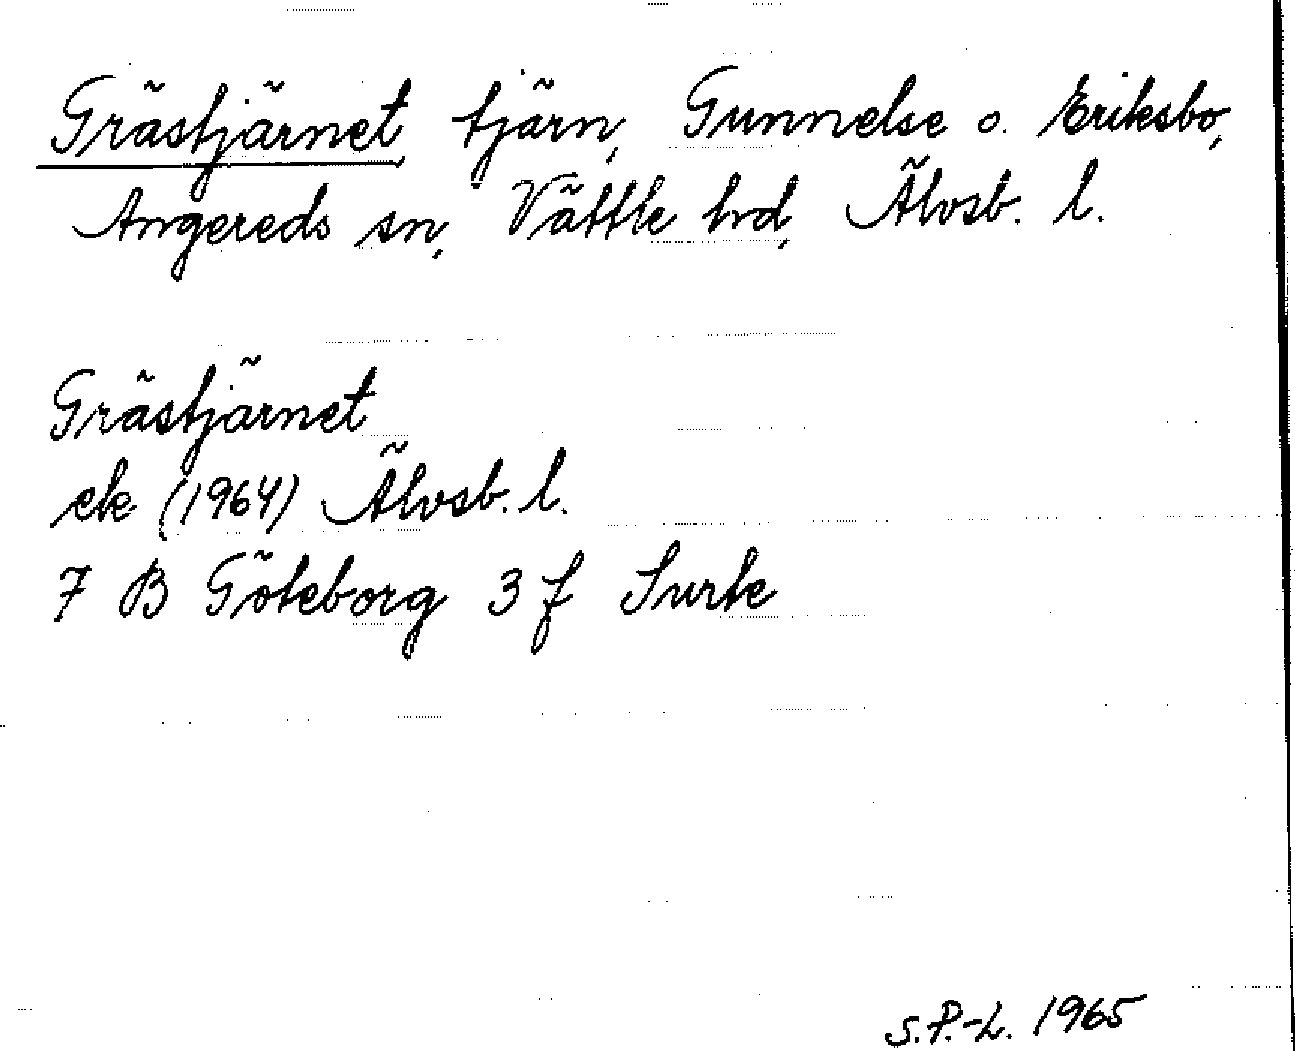 Grästjärnet, tjärn, Gunnelse o. Eriksbo,
Angereds sn, Vättle hd, Älvsb. l.
Grästjärnet
ek (1964) Älvsb. l.
7 B Göteborg 3 f Surte
S.P.-L. 1965